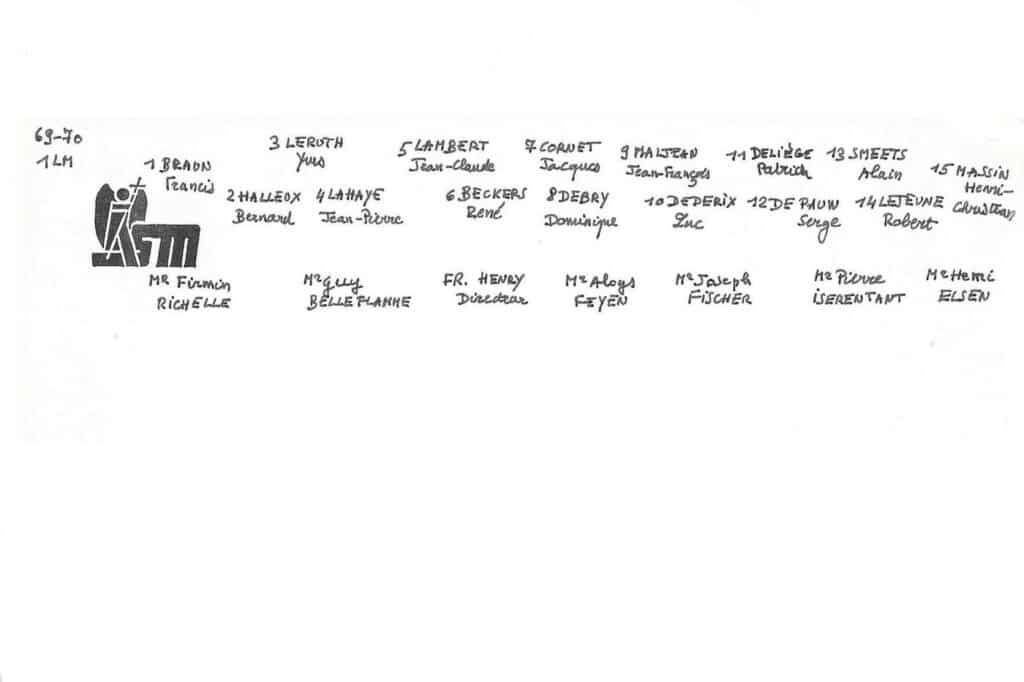 69-70
1 LM
1 BRAUN
Francis
2 HALLEOX
Bernard
3 LEROTH
Yves
4 LAHAYE
Jean-Pierre
5 LAMBERT
Jean-Claude
6 BECKERS
René
7 CORNET
Jacques
8 DEBRY
Dominique
9 MALJEAN
Jean-François
10 DEDERIX
Luc
11 DELIÈGE
Patrick
12 DE PAUW
Serge
13 SMEETS
Alain
14 LEJEUNE
Robert
15 MASSIN
Henri-
Christian
Mr Firmin
RICHELLE
Mr Guy
BELLEFLAMME
FR. HENRY
Directeur
Mr Aloys
FEYEN
Mr Joseph
FISCHER
Mr Pierre
ISERENTANT
Mr Henri
ELSEN